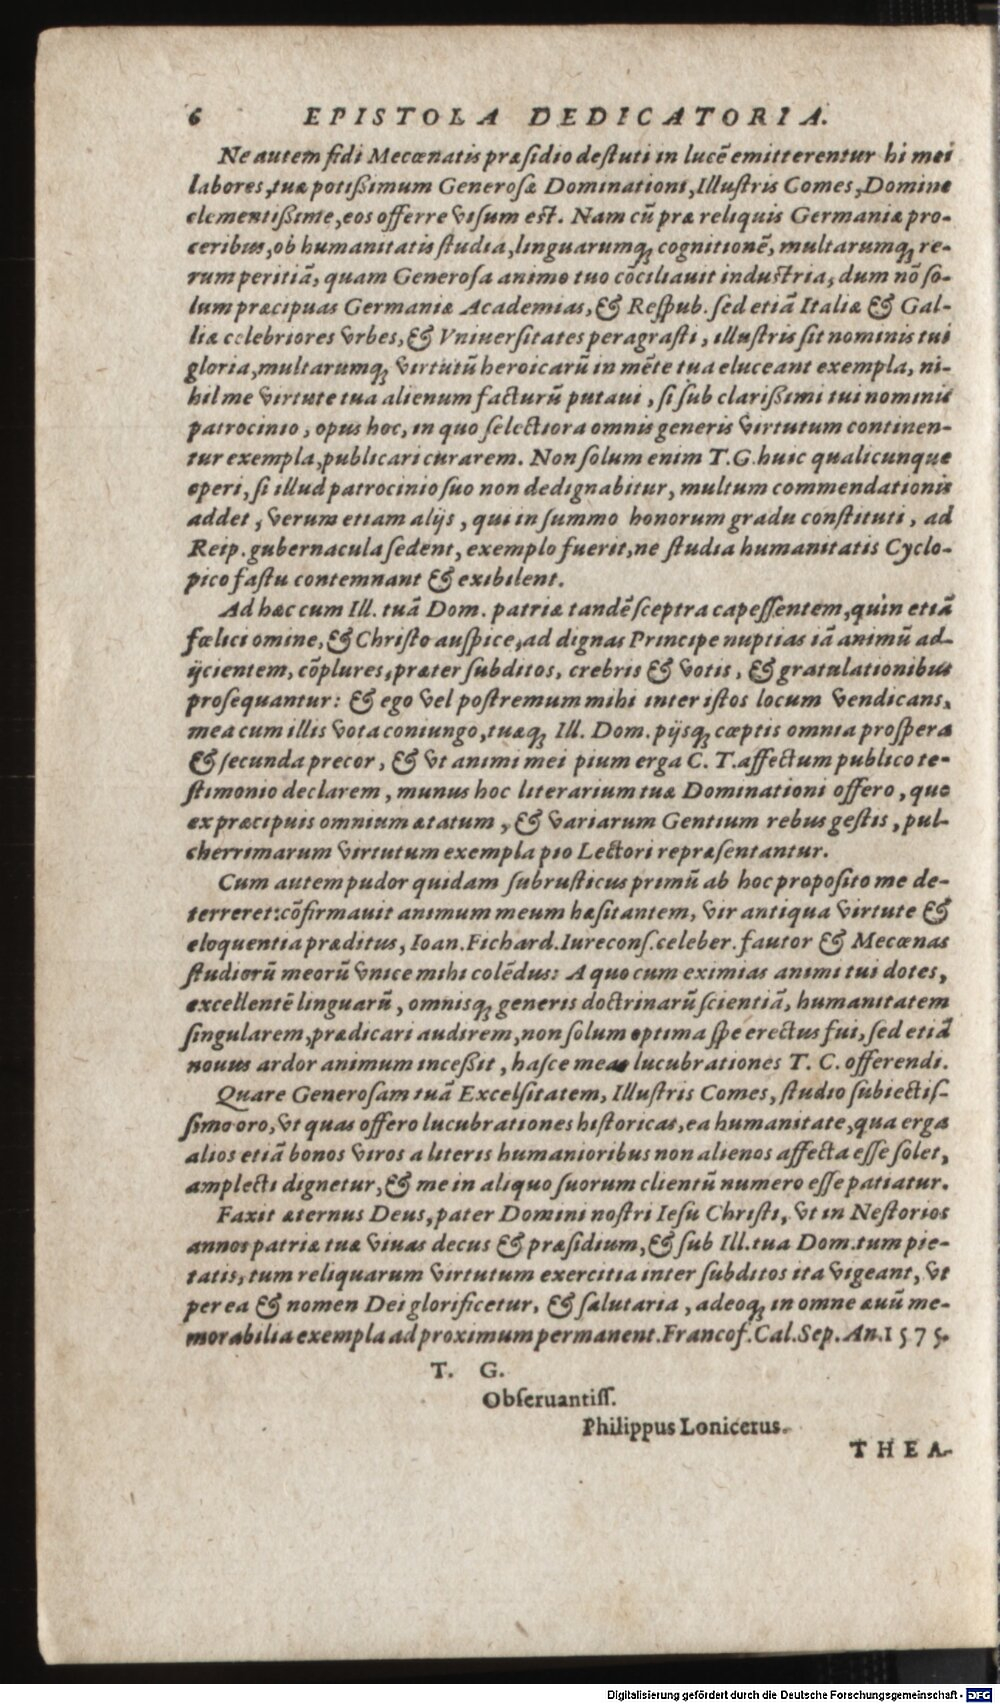 6 EPISTOLA DEDICATORIA.
Ne autem fidi Mecœnatis præſidio deſtuti in lucē emitterentur hi mei
labores, tuæ potißimum Generoſæ Dominationi, Illuſtris Comes, Domine
clementißime, eos offerre viſum est. Nam cū præ reliquis Germaniæ pro-
ceribus, ob humanitatis ſtudia, linguarumq́; cognitionē, multarumq́; re-
rum peritiā, quam Generoſa animo tuo cōciliauit induſtria, dum nō ſo-
lum præcipuas Germaniæ Academias, & Reſpub. ſed etiā Italiæ & Gal-
liæ celebriores vrbes, & Vniuerſitates peragraſti, illuſtris ſit nominis tui
gloria, multarumq́; virtutū heroicarū in mēte tua eluceant exempla, ni-
hil me virtute tua alienum facturū putaui, ſi ſub clarißimi tui nominis
patrocinio, opus hoc, in quo ſelectiora omnis generis virtutum continen-
tur exempla, publicari curarem. Non ſolum enim T. G. huic qualicunque
operi, ſi illud patrocinio ſuo non dedignabitur, multum commendationis
addet, verum etiam alijs, qui in ſummo honorum gradu conſtituti, ad
Reip. gubernacula ſedent, exemplo fuerit, ne ſtudia humanitatis Cyclo-
pico faſtu contemnant & exibilent.
Ad hæc cum Ill. tuā Dom. patriæ tandē ſceptra capeſſentem, quin etiā
fœlici omine, & Chriſto auſpice, ad dignas Principe nuptias iā animū ad-
ijcientem, cōplures, præter ſubditos, crebris & votis, & gratulationibus
proſequantur: & ego vel poſtremum mihi inter iſtos locum vendicans,
mea cum illis vota coniungo, tuæq́; Ill. Dom. pijsq́; cœptis omnia proſpera
& ſecunda precor, & vt animi mei pium erga C. T. affectum publico te-
ſtimonio declarem, munus hoc literarium tuæ Dominationi offero, quo
ex præcipuis omnium ætatum, & variarum Gentium rebus geſtis, pul-
cherrimarum virtutum exempla pio Lectori repræſentantur.
Cum autem pudor quidam ſubruſticus primū ab hoc propoſito me de-
terreret: cōfirmauit animum meum hæſitantem, vir antiqua virtute &
eloquentia præditus, Ioan. Fichard. Iureconſ. celeber. fautor & Mecœnas
ſtudiorū meorū vnice mihi colēdus: A quo cum eximias animi tui dotes,
excellentē linguarū, omnisq́; generis doctrinarū ſcientiā, humanitatem
ſingularem, prædicari audirem, non ſolum optima ſpe erectus fui, ſed etiā
nouus ardor animum inceßit, haſce meas lucubrationes T. C. offerendi.
Quare Generoſam tuā Excelſitatem, Illuſtris Comes, ſtudio ſubiectiſ-
ſimo oro, vt quas offero lucubrationes hiſtoricas, ea humanitate, qua erga
alios etiā bonos viros a literis humanioribus non alienos affecta eſſe ſolet,
amplecti dignetur, & me in aliquo ſuorum clientū numero eſſe patiatur.
Faxit æternus Deus, pater Domini noſtri Ieſu Chriſti, vt in Neſtorios
annos patriæ tuæ viuas decus & præſidium, & ſub Ill. tua Dom. tum pie-
tatis, tum reliquarum virtutum exercitia inter ſubditos ita vigeant, vt
per ea & nomen Dei glorificetur, & ſalutaria, adeoq́; in omne æuū me-
morabilia exempla ad proximum permanent. Francof. Cal. Sep. An. 1575.
T. G.
Obſeruantiſſ.
Philippus Lonicerus.
THEA-
Digitalisierung gefördert durch die Deutsche Forschungsgemeinschaft - DFG